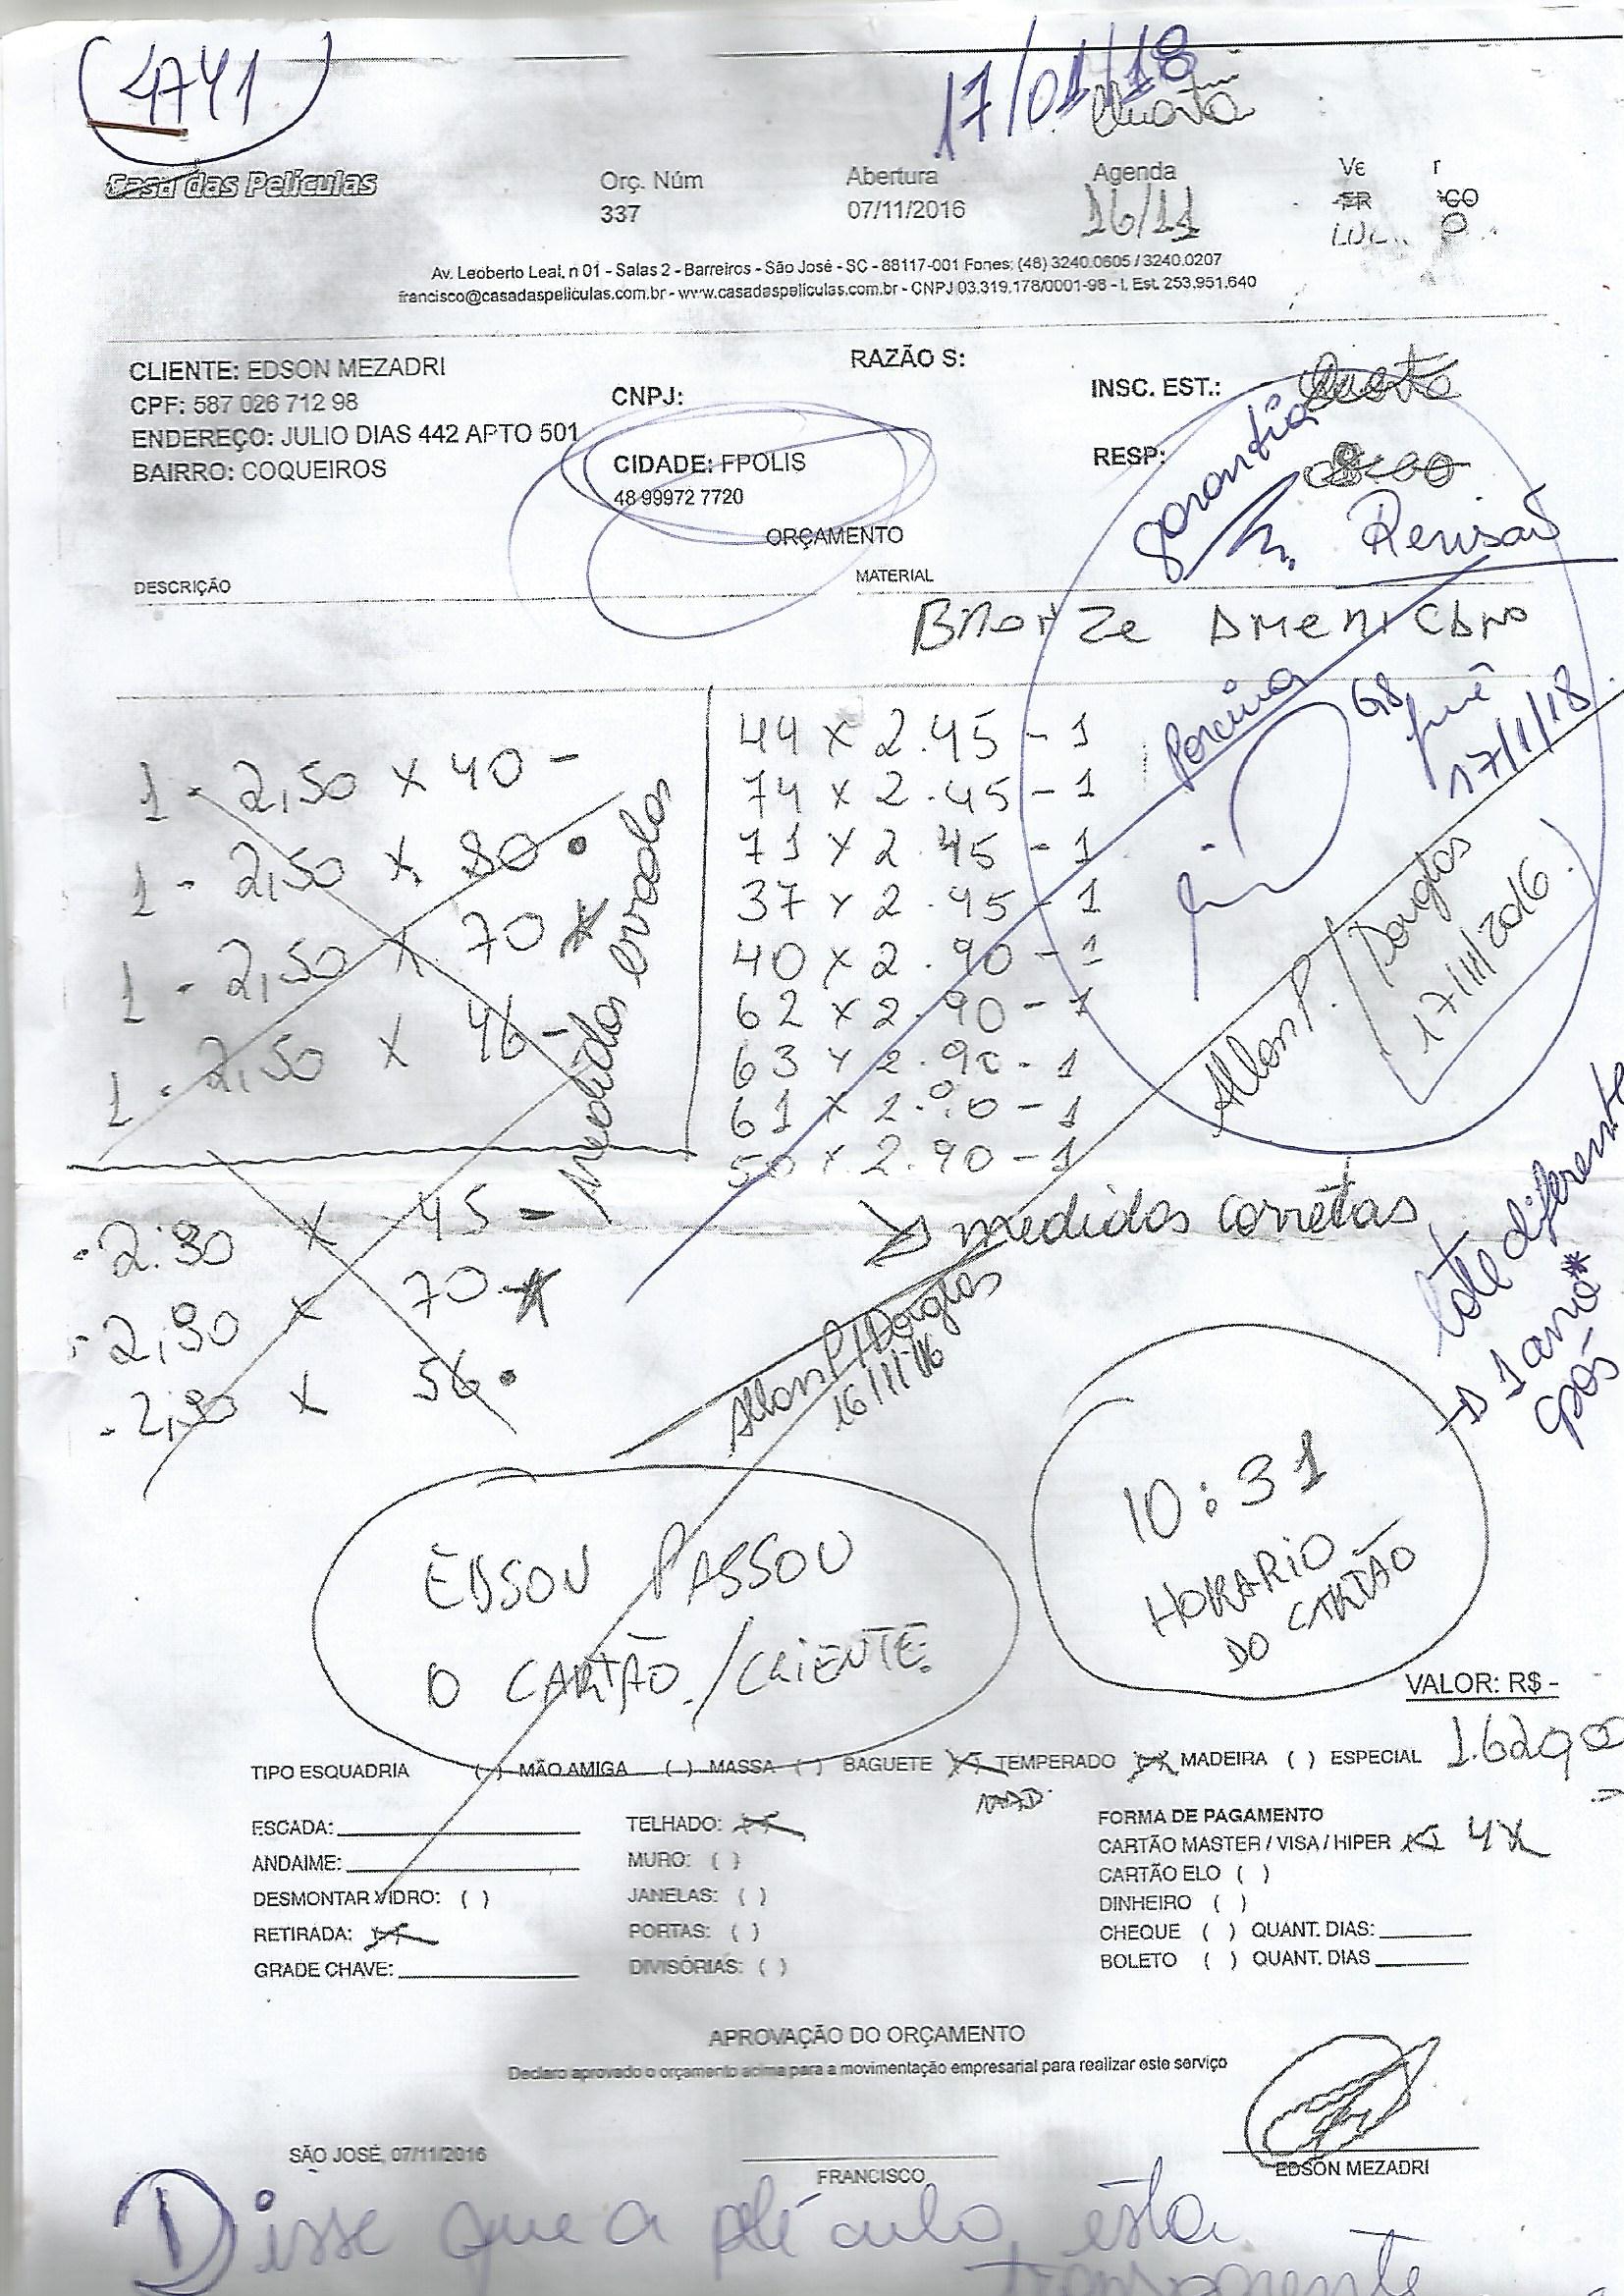 (4741)
17/01/18
Quarta
Casa das Películas
Orç. Núm
337
Abertura
07/11/2016
Agenda
16/11
Av. Leoberto Leal, n 01 - Salas 2 - Barreiros - São José - SC - 88117-001 Fones: (48) 3240.0605 / 3240.0207
francisco@casadaspeliculas.com.br - www.casadaspeliculas.com.br - CNPJ 03.319.178/0001-98 - I. Est. 253.951.640
CLIENTE: EDSON MEZADRI
CPF: 587 026 712 98
ENDEREÇO: JULIO DIAS 442 APTO 501
BAIRRO: COQUEIROS
CNPJ:
CIDADE: FPOLIS
48 99972 7720
RAZÃO S:
INSC. EST.:
RESP:
garantia
Revisão
ORÇAMENTO
DESCRIÇÃO
MATERIAL
Bronze Americano
1 - 2,50 x 40 -
1 - 2,50 x 80 •
1 - 2,50 x 70 *
1 - 2,50 x 46 -
medidas erradas
- 2.90 x 45 -
- 2,90 x 70 *
- 2,90 x 56 •
44 x 2.45 - 1
74 x 2.45 - 1
71 x 2.45 - 1
37 x 2.45 - 1
40 x 2.90 - 1
62 x 2.90 - 1
63 x 2.90 - 1
61 x 2.90 - 1
50 x 2.90 - 1
medidas corretas
17/1/18
Allan P. / Douglas
17/11/2016
Allan P / Douglas
16/11/16
lote diferente
1 ano*
após
EDSON PASSOU
O CARTÃO / CLIENTE
10:31
HORARIO
DO CARTÃO
VALOR: R$ -
1.629,00
TIPO ESQUADRIA ( ) MÃO AMIGA ( ) MASSA ( ) BAGUETE (X) TEMPERADO (X) MADEIRA ( ) ESPECIAL
ESCADA:
ANDAIME:
DESMONTAR VIDRO: ( )
RETIRADA: (X)
GRADE CHAVE:
TELHADO: (X)
MURO: ( )
JANELAS: ( )
PORTAS: ( )
DIVISÓRIAS: ( )
FORMA DE PAGAMENTO
CARTÃO MASTER / VISA / HIPER (X) 4X
CARTÃO ELO ( )
DINHEIRO ( )
CHEQUE ( ) QUANT. DIAS:
BOLETO ( ) QUANT. DIAS
APROVAÇÃO DO ORÇAMENTO
Declaro aprovado o orçamento acima para a movimentação empresarial para realizar este serviço
SÃO JOSÉ, 07/11/2016
FRANCISCO
EDSON MEZADRI
Disse que a película esta
transparente